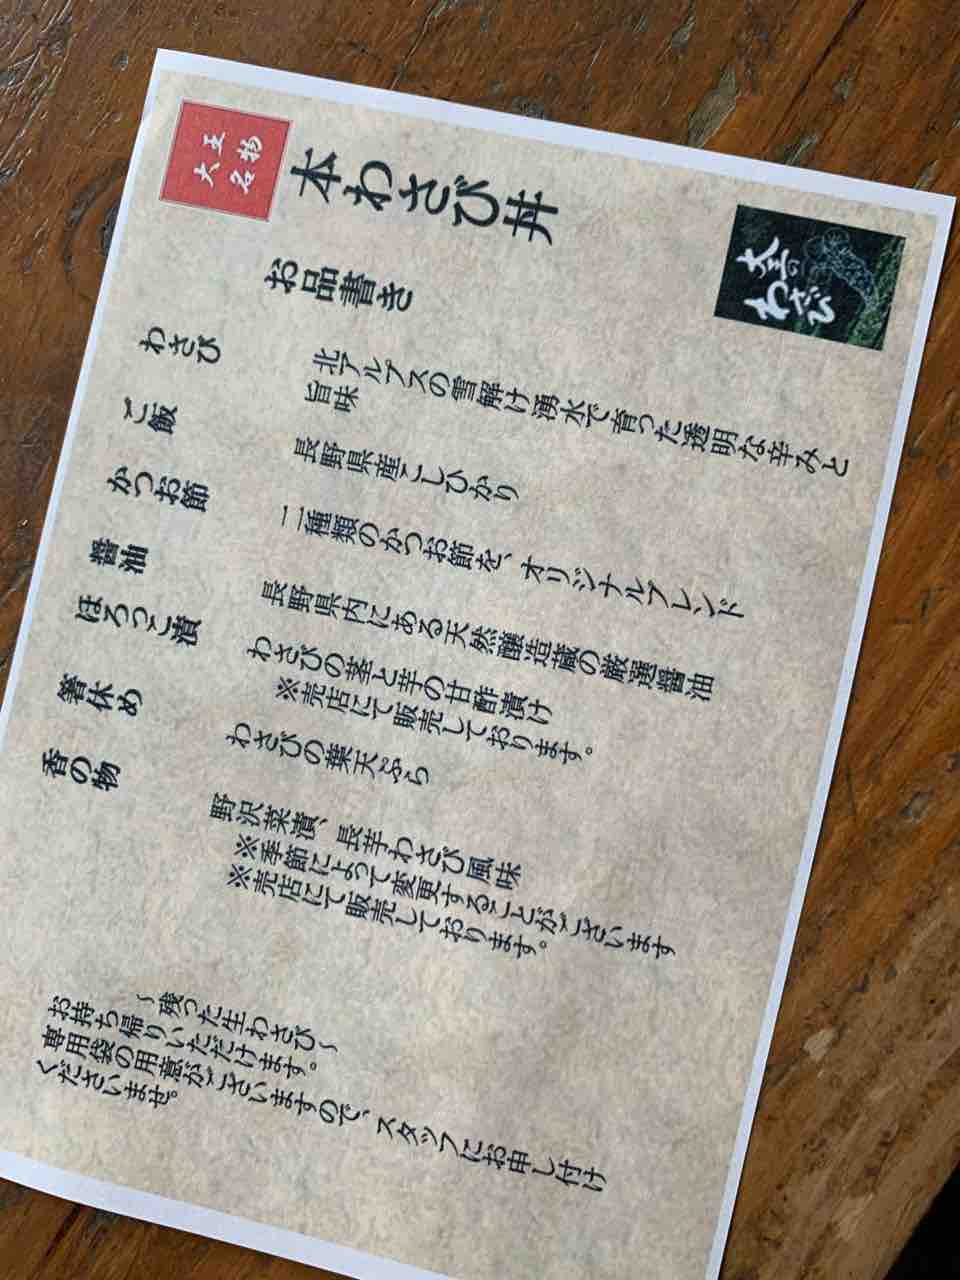 大王
名物
本わさび丼
大王の
わさび
お品書き
わさび
北アルプスの雪解け湧水で育った透明な辛みと
旨味
ご飯
長野県産こしひかり
かつお節
二種類のかつお節を、オリジナルブレンド
醤油
長野県内にある天然醸造蔵の厳選醤油
ほろっこ漬
わさびの茎と芋の甘酢漬け
※売店にて販売しております。
箸休め
わさびの葉天ぷら
香の物
野沢菜漬、長芋わさび風味
※季節によって変更することがございます
※売店にて販売しております。
~残った生わさび~
お持ち帰りいただけます。
専用袋の用意がございますので、スタッフにお申し付け
くださいませ。